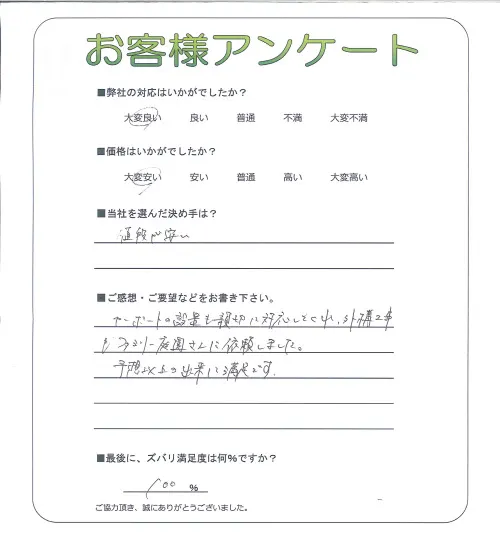 お客様アンケート
■弊社の対応はいかがでしたか？
大変良い 良い 普通 不満 大変不満
■価格はいかがでしたか？
大変安い 安い 普通 高い 大変高い
■当社を選んだ決め手は？
値段が安い
■ご感想・ご要望などをお書き下さい。
カーポートの設置も親切に対応してくれ、外構工事
もファミリー庭園さんに依頼しました。
予想以上の出来に満足です。
■最後に、ズバリ満足度は何%ですか？
100 %
ご協力頂き、誠にありがとうございました。